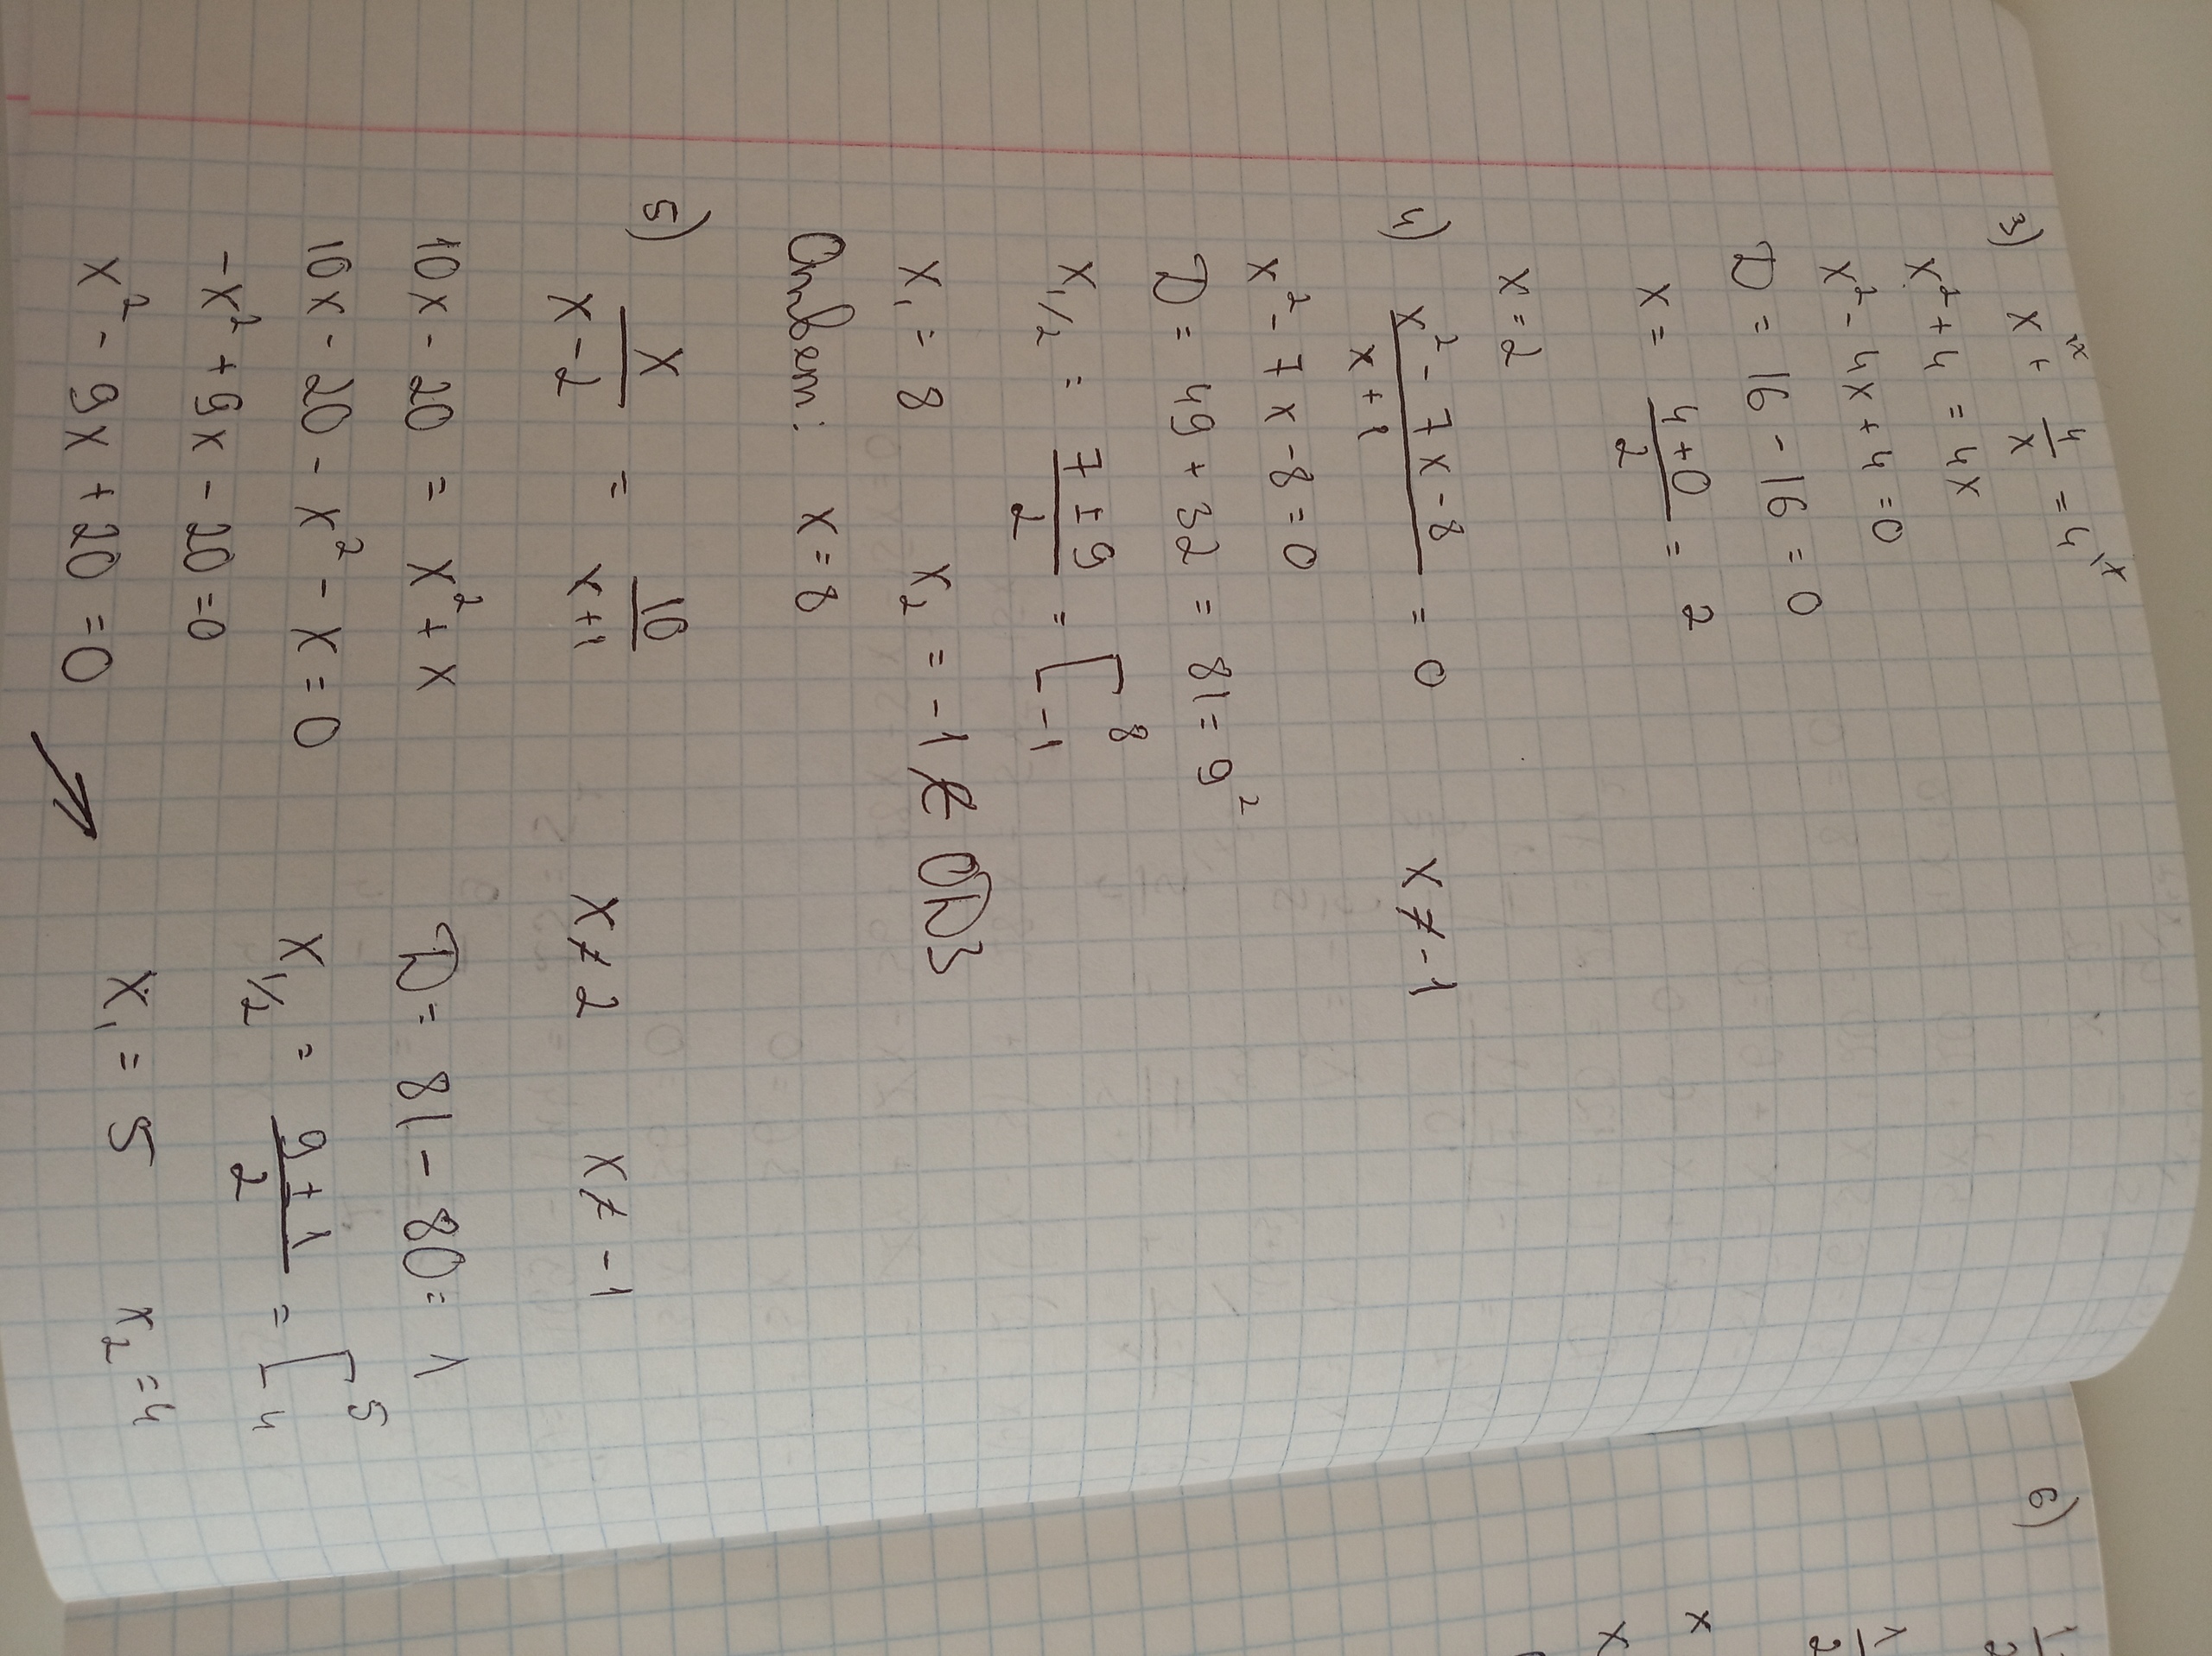 3) x + 4/x = 4
x² + 4 = 4x
x² - 4x + 4 = 0
D = 16 - 16 = 0
x = (4+0)/2 = 2
x = 2
4) (x² - 7x - 8)/(x+1) = 0    x ≠ -1
x² - 7x - 8 = 0
D = 49 + 32 = 81 = 9²
x₁/₂ = (7 ± 9)/2 = [ 8 -1
x₁ = 8    x₂ = -1 ∉ ОДЗ
Ответ: x = 8
5) x/(x-2) = 10/(x+1)    x ≠ 2    x ≠ -1
10x - 20 = x² + x
10x - 20 - x² - x = 0
-x² + 9x - 20 = 0
x² - 9x + 20 = 0
D = 81 - 80 = 1
x₁/₂ = (9 ± 1)/2 = [ 5 4
x₁ = 5    x₂ = 4
6)